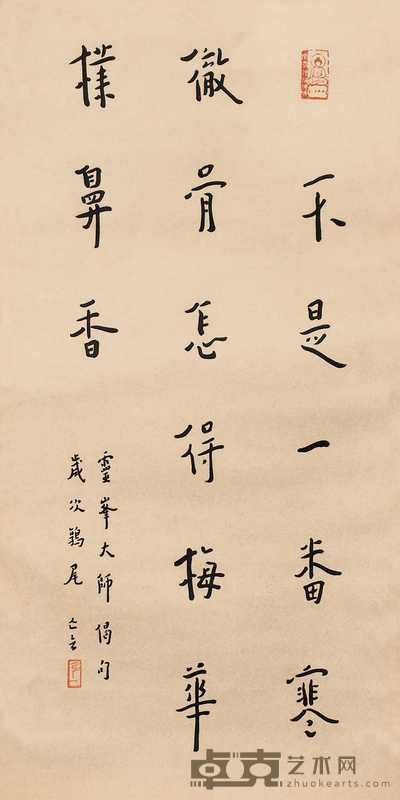 不是一番寒
徹骨怎得梅華
樸鼻香
靈峯大師偈句
歲次鶉尾 亡言
卓克艺术网
zhuokearts.com